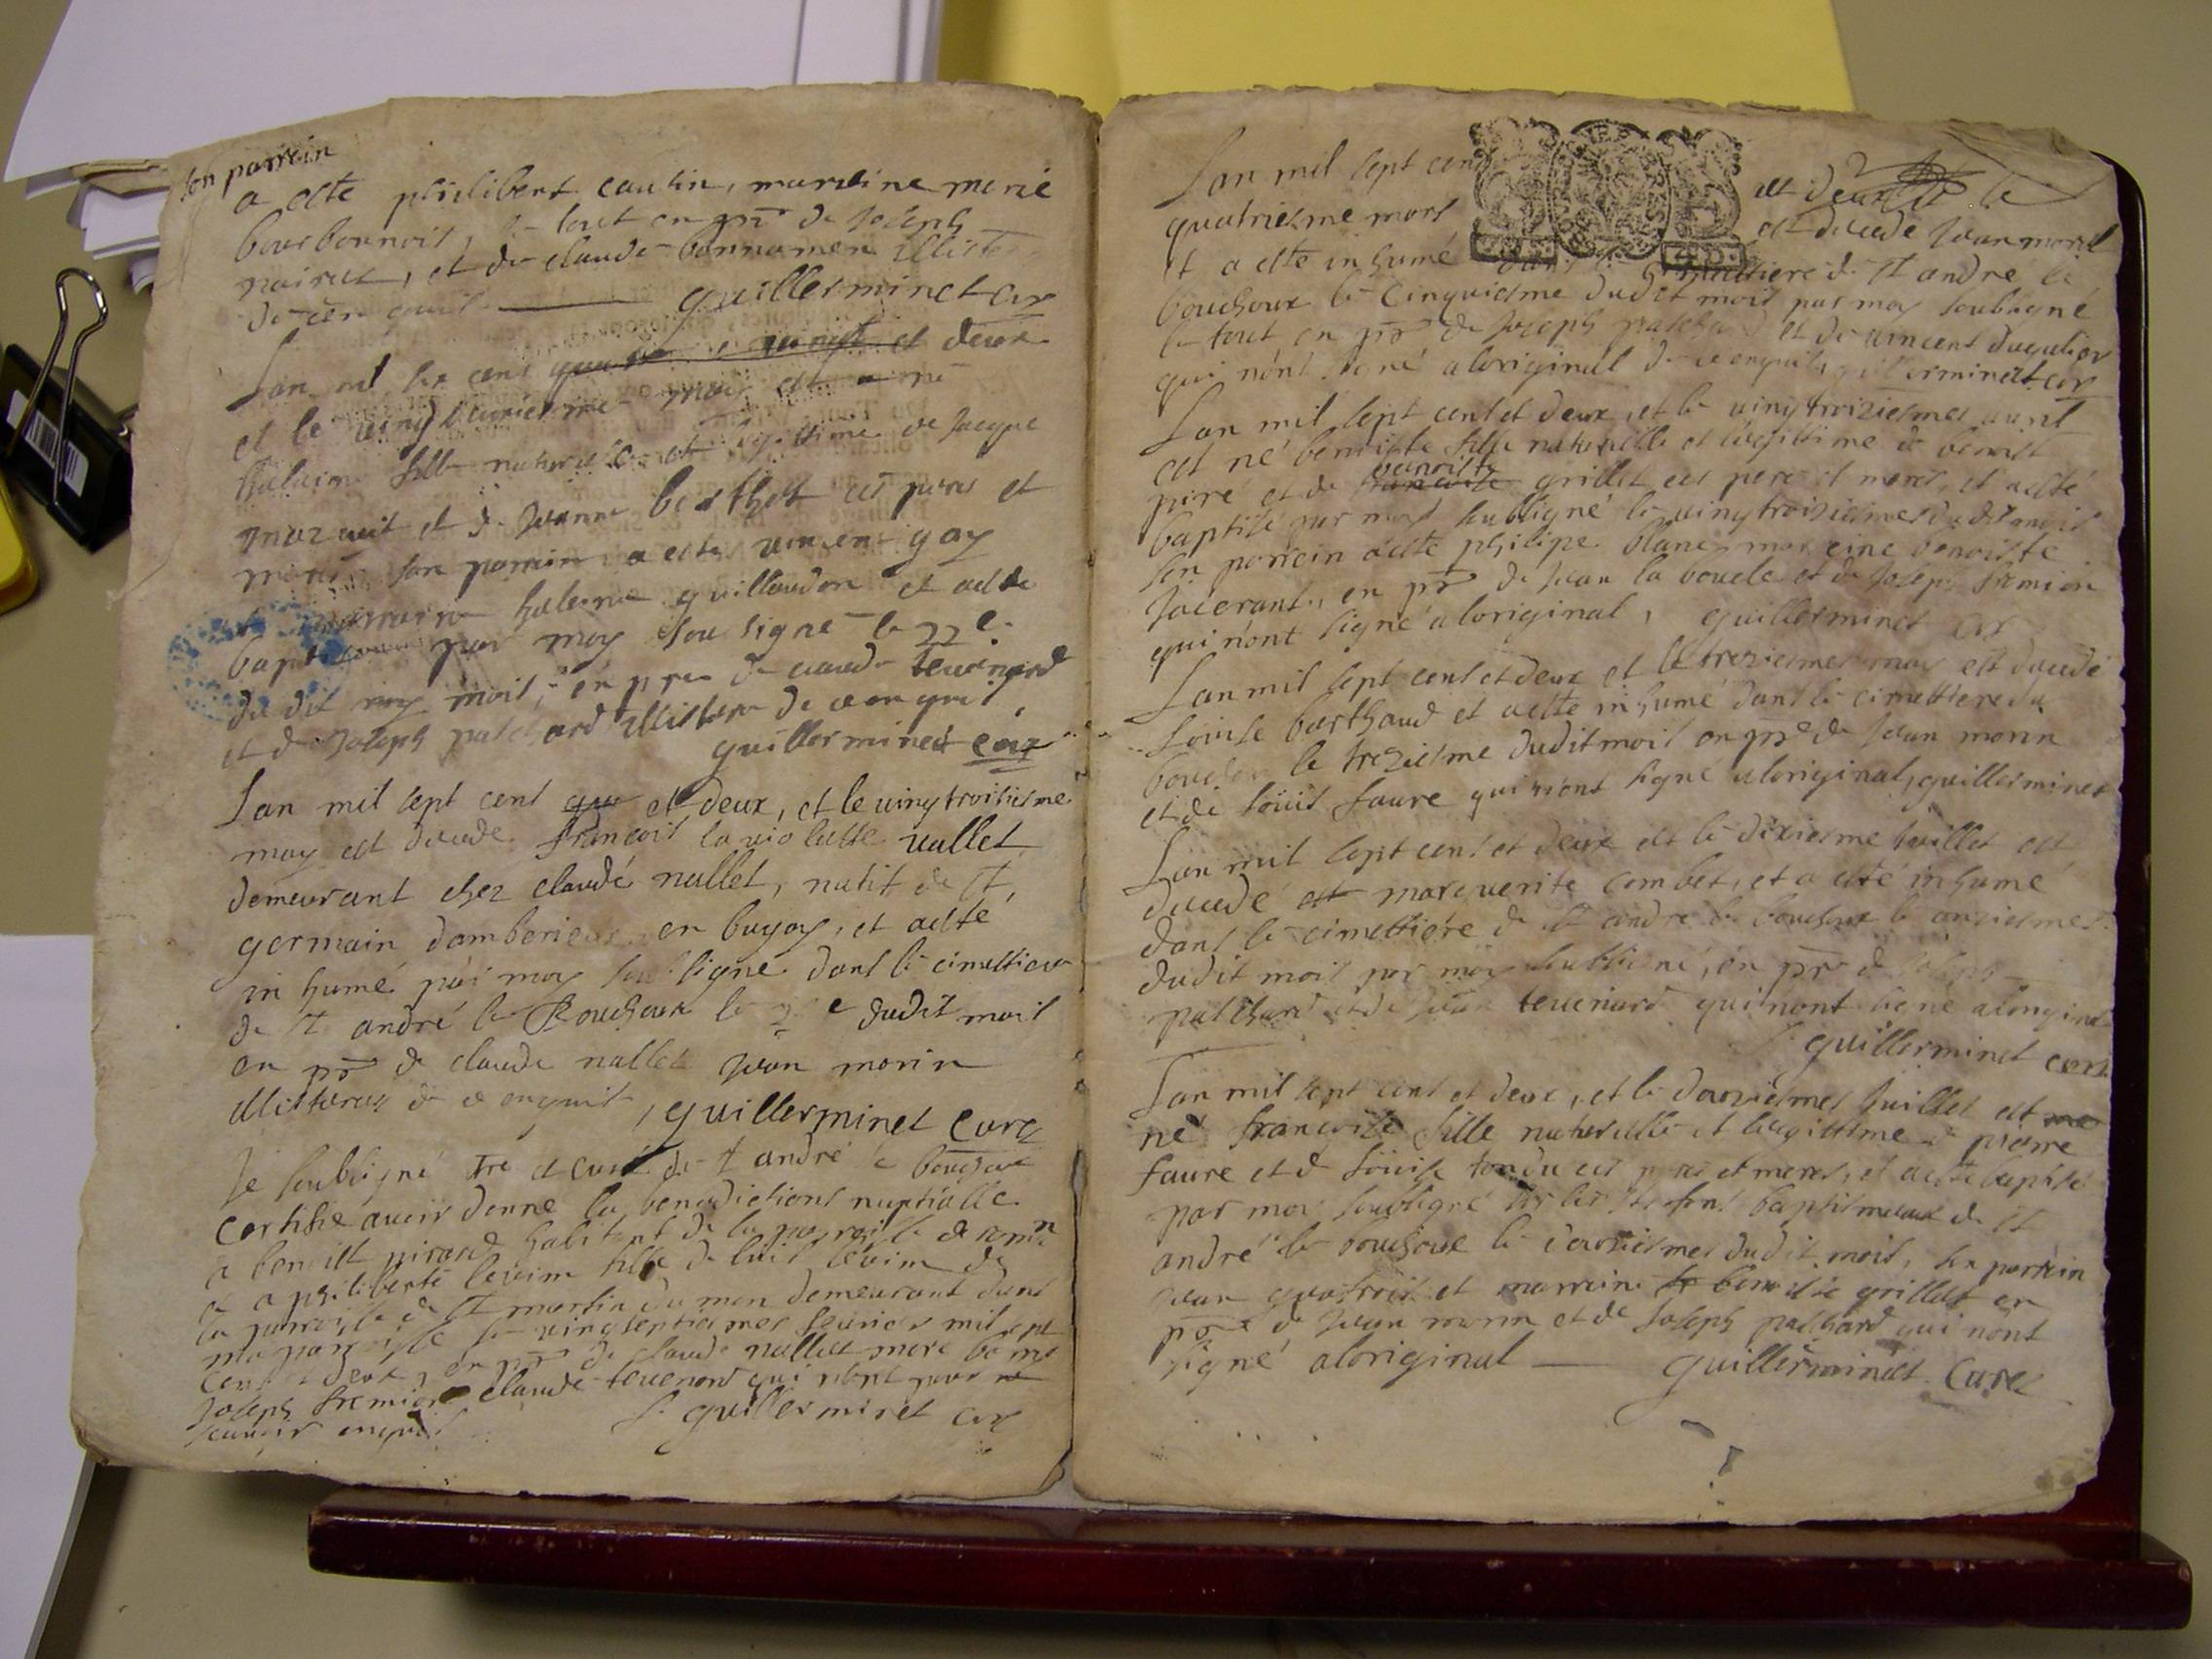 son parrein
a esté philibert cautin, marreine marie
bourbonnois, le tout en pñ de Joseph
et de claude bonnamen
de ce enquis guillerminet cur
Lan mil et deux
et le may est né
fille naturelle et de Jacque
et de Jeanne berthet ses peres et
son parrein a esté vincent gay
marraine helene guillaudon et a esté
par moy sousigné le 22e
du dit moy mois, en pre de claude tevenard
et de Joseph patchard illisteres de ce enquis
guillerminet curez
Lan mil sept cens et deux, et le vingtroisiesme
may est decede francois la violette vallet
demeurant chez claude nallet, natif de st
germain damberieux en bugay, et a esté
in humé par moy soubsigné dans le cimettiere
de st andré le Bouchoux le e dudit mois
en pñ de claude nallet Jean morin
illisteres de ce enquis, guillerminet Curez
Je soubsigné et curé de st andré le bouchoux
Certifie avoir donné la benedictions nuptialle
a benoist pirard habitant de la parroisse de romã
et a philiberte levim fille de luis levim de
la parroisse de st martin du mon demeurant dans
ma parroisse le vingseptiesmes feuvrier mil sept
cens et deux, en pñ de claude nallet
Joseph fremion claude tevenard qui nont
scavoir enquis guillerminet cur
Lan mil sept cens et deux le
quatriesme mars est decede Jean morel
et a esté inhumé cimettiere de st andré le
bouchoux le Cinquiesme dudit mois par moy soubsigné
le tout en pñ de Joseph patchard et de vincent
qui nont signé a loriginal de ce enquis, guillerminet cur
Lan mil sept cens et deux, et le vingtroiziesmes avril
est né benoiste fille naturelle et legittime de benoist
piré et de benoiste grillet ses pere et meres, et a esté
baptisé par moy soubsigné le vingtroisiesmes dudit mois
son parrein a esté philipe blanc, marreine benoiste
Jacerant, en pñ de Jean la boucle et de Joseph fremion
qui nont signé a loriginal, guillerminet cur
Lan mil sept cens et deux et le treziesmes may est decedé
Louise barthaud et a esté inhumé dans le cimettiere du
le treziesme dudit mois en pñ de Jean morin
et de Louis faure qui nont signé a loriginal, guillerminet
Lan mil sept cens et deux et le dixiesme Juillet est
decedé marguerite combet, et a esté inhumé
dans le cimettiere de st andré le bouchoux le onziesmes
dudit mois par moy soubsigné, en pñ de Joseph
patchard et de Jean tevenard qui nont signé a loriginal
guillerminet curez
Lan mil sept cens et deux, et le douziesmes Juillet est
né francoise fille naturelle et legittime de pierre
faure et de Louise tondu ses peres et meres, et a esté baptisé
par moy soubsigné sur les sts fons baptismeaux de st
andré le bouchoux le douziesmes dudit mois, son parrein
Jean et marreine benoiste grillet en
pñ de Jean morin et de Joseph patchard qui nont
signé a loriginal guillerminet Curez